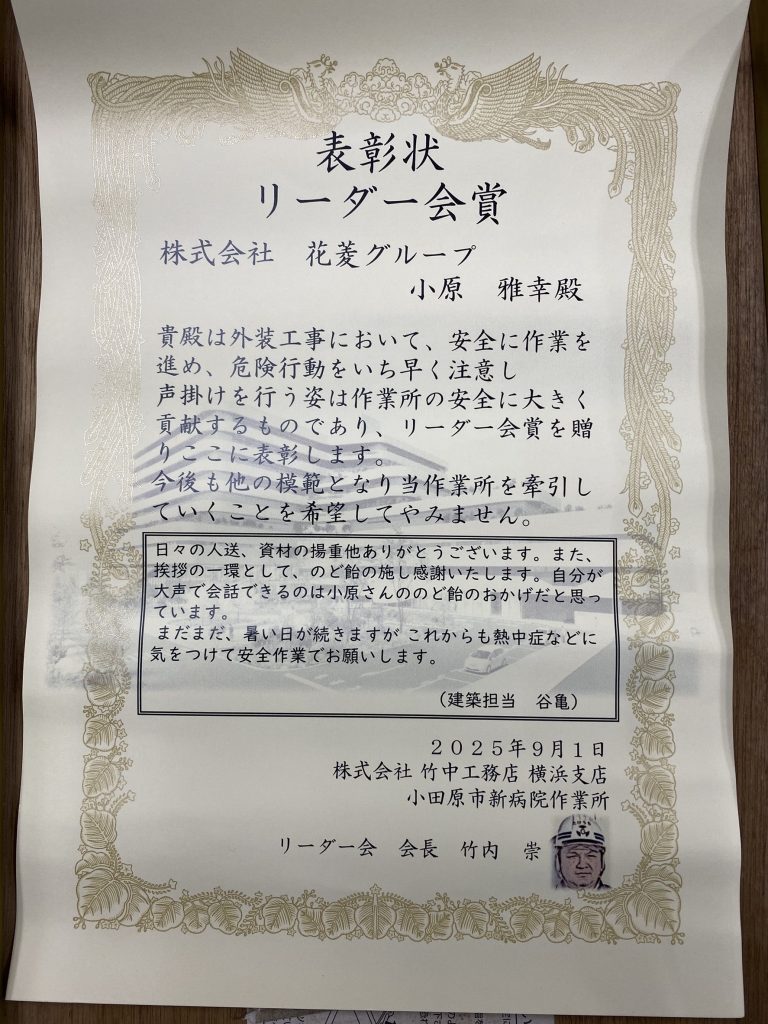 表彰状
リーダー会賞
株式会社 花菱グループ
小原 雅幸殿
貴殿は外装工事において、安全に作業を
進め、危険行動をいち早く注意し
声掛けを行う姿は作業所の安全に大きく
貢献するものであり、リーダー会賞を贈
りここに表彰します。
今後も他の模範となり当作業所を牽引し
ていくことを希望してやみません。
日々の人送、資材の揚重他ありがとうございます。また、
挨拶の一環として、のど飴の施し感謝いたします。自分が
大声で会話できるのは小原さんののど飴のおかげだと思っ
ています。
まだまだ、暑い日が続きますが これからも熱中症などに
気をつけて安全作業でお願いします。
（建築担当 谷亀）
２０２５年９月１日
株式会社 竹中工務店 横浜支店
小田原市新病院作業所
リーダー会 会長 竹内 崇